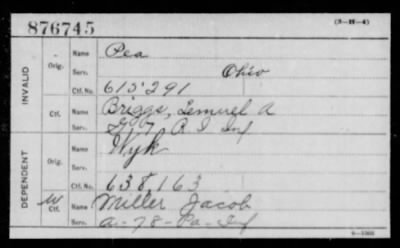 876745 (3-H-4)
INVALID Orig. Name Pea
Serv. Ohio
Ctf. No. 615291
Ctf. Name Briggs, Lemuel A
Serv. 7 R I Inf
DEPENDENT Orig. Name Wyk
Serv.
Ctf. No. 638,163
W Ctf. Name Miller Jacob
Serv. A-78-Pa-Inf